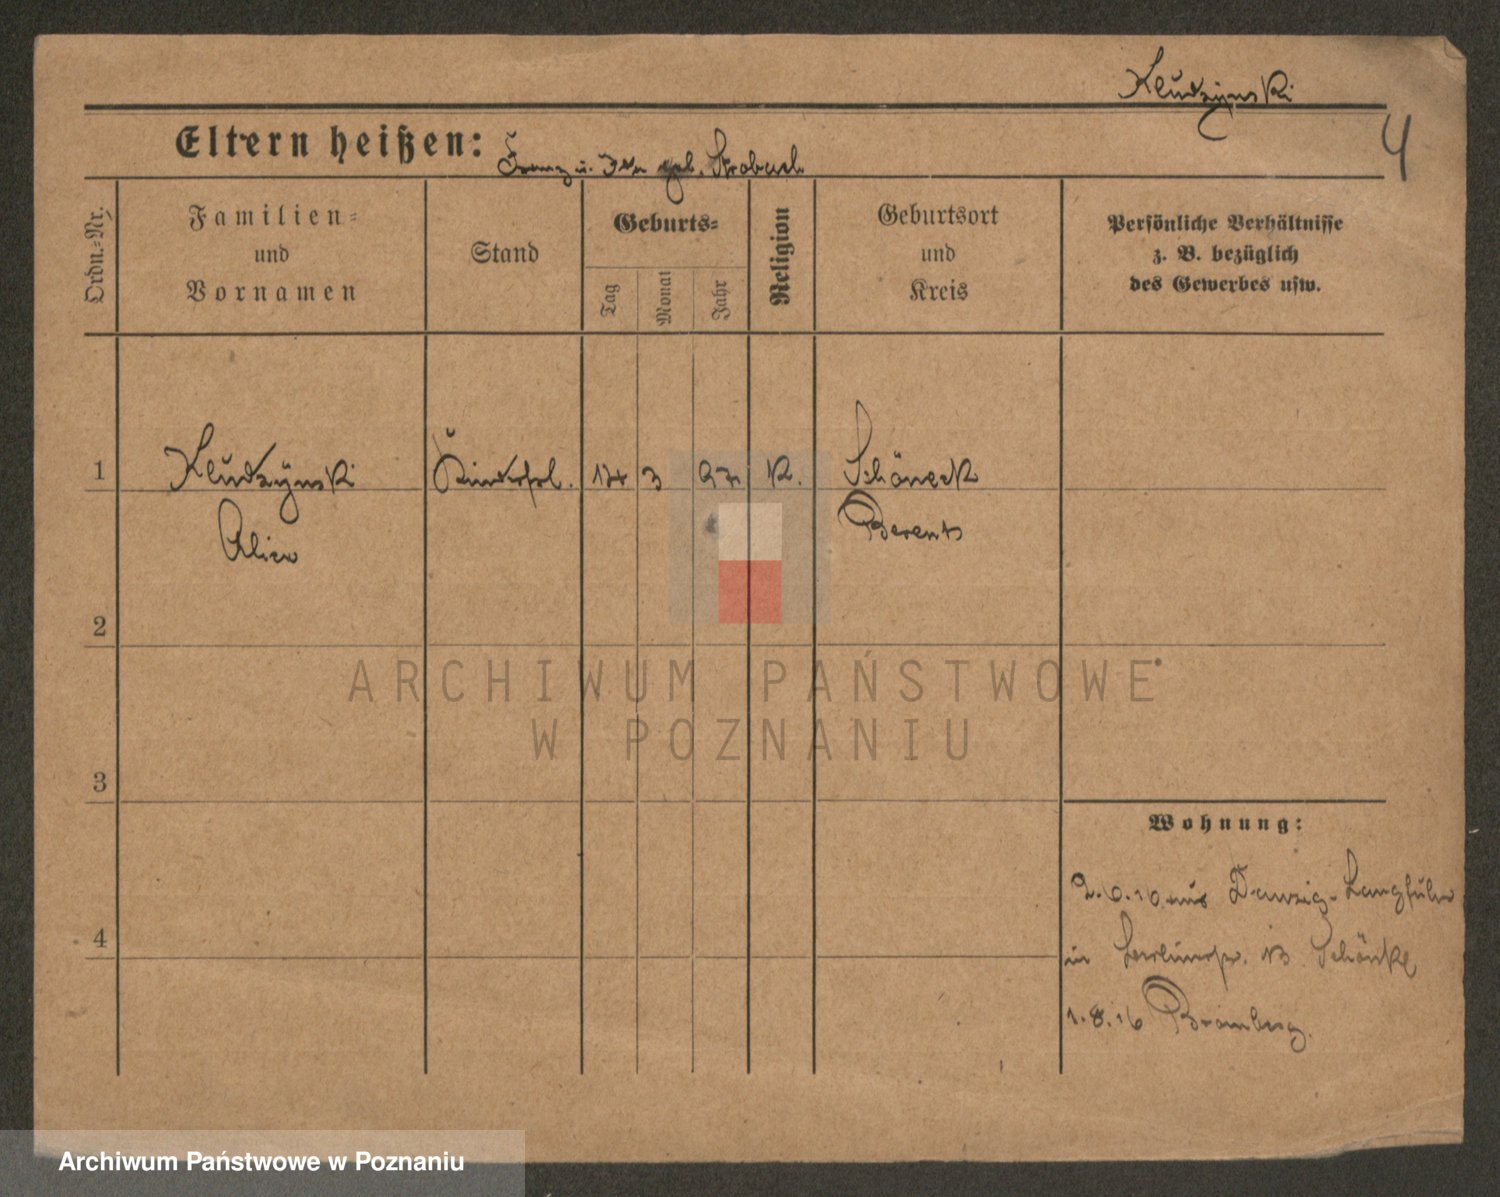 Kludzynski
4
Eltern heißen: Franz u. Ida geb. Strobach
Ordn.-Nr.
Familien-
und
Vornamen
Stand
Geburts-
Tag
Monat
Jahr
Religion
Geburtsort
und
Kreis
Persönliche Verhältnisse
z. B. bezüglich
des Gewerbes usw.
1 Kludzynski Kinderfrl. 3 97 K. Schöneck
Alice Berent
2
ARCHIWUM PAŃSTWOWE
W POZNANIU
3
Wohnung:
aus Danzig-Langfuhr
4 in Schönke
1.8.16 Bromberg.
Archiwum Państwowe w Poznaniu